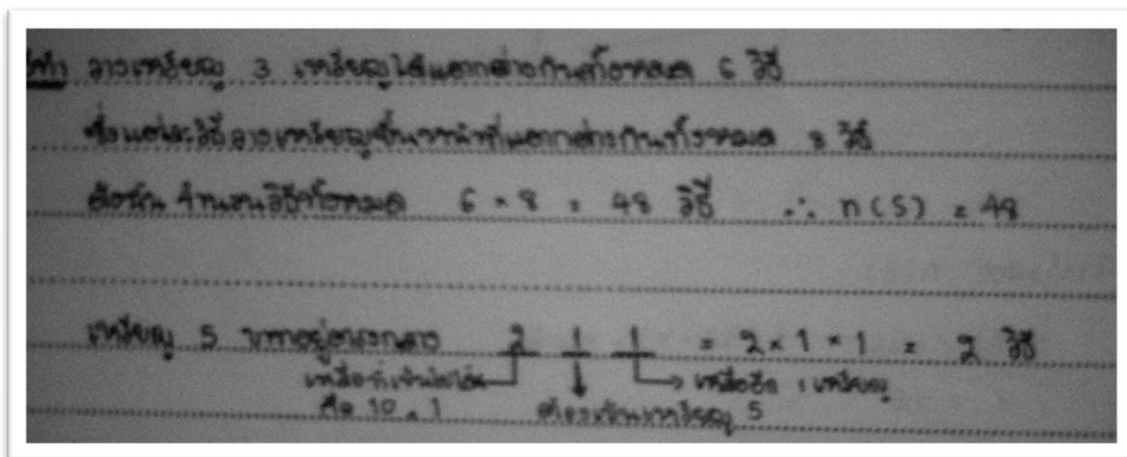 วิธีทำ วางเหรียญ 3 เหรียญได้แตกต่างกันทั้งหมด 6 วิธี
ซึ่งแต่ละวิธีวางเหรียญขึ้นหน้าที่แตกต่างกันทั้งหมด 8 วิธี
ดังนั้น จำนวนวิธีทั้งหมด 6 × 8 = 48 วิธี ∴ n(S) = 48
เหรียญ 5 บาทอยู่ตรงกลาง 2 1 1 = 2 × 1 × 1 = 2 วิธี
เหลือ คือ 10, 1
ต้องเป็นเหรียญ 5
เหลืออีก 1 เหรียญ